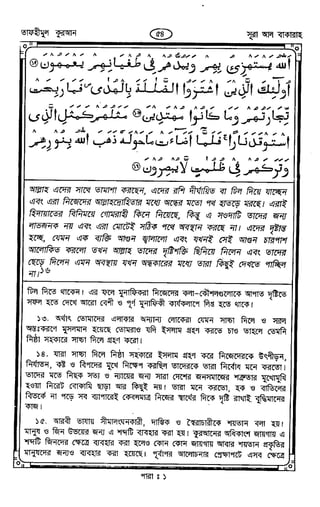 তাফহীমুল কুরআন ৫৪ সূরা আল বাকারাহ
اللَّهُ يَسْتَهْزِئُ بِهِمْ وَيَمُدُّهُمْ فِي طُغْيَانِهِمْ يَعْمَهُونَ ⑮
أُولَٰئِكَ الَّذِينَ اشْتَرَوُا الضَّلَالَةَ بِالْهُدَىٰ فَمَا رَبِحَتْ
تِجَارَتُهُمْ وَمَا كَانُوا مُهْتَدِينَ ⑯ مَثَلُهُمْ كَمَثَلِ الَّذِي
اسْتَوْقَدَ نَارًا فَلَمَّا أَضَاءَتْ مَا حَوْلَهُ ذَهَبَ اللَّهُ بِنُورِهِمْ
وَتَرَكَهُمْ فِي ظُلُمَاتٍ لَا يُبْصِرُونَ ⑰
আল্লাহ এদের সাথে তামাশা করছেন, এদের রশি দীর্ঘায়িত বা ঢিল দিয়ে যাচ্ছেন
এবং এরা নিজেদের আল্লাহদ্রোহিতার মধ্যে অন্ধের মতো পথ হাতড়ে মরছে। এরাই
হিদায়াতের বিনিময়ে গোমরাহী কিনে নিয়েছে, কিন্তু এ সওদাটি তাদের জন্য
লাভজনক নয় এবং এরা মোটেই সঠিক পথে অবস্থান করছে না। এদের দৃষ্টান্ত
হচ্ছে, যেমন এক ব্যক্তি আগুন জ্বালালো এবং যখনই সেই আগুন চারপাশ
আলোকিত করলো তখন আল্লাহ তাদের দৃষ্টিশক্তি ছিনিয়ে নিলেন এবং তাদের
ছেড়ে দিলেন এমন অবস্থায় যখন অন্ধকারের মধ্যে তারা কিছুই দেখতে পাচ্ছিল
না।১৬
ঢিল দিতে থাকেন। এর ফলে মুনাফিকরা নিজেদের কলা-কৌশলগুলোকে আপাত দৃষ্টিতে
সফল হতে দেখে আরো বেশী ও পূর্ণ মুনাফিকী কার্যকলাপে লিপ্ত হতে থাকে।
১৩. অর্থাৎ তোমাদের এলাকার অন্যান্য লোকেরা যেমন সাচ্চা দিলে ও সরল
অন্তঃকরণে মুসলমান হয়েছে তোমরাও যদি ইসলাম গ্রহণ করতে চাও তাহলে তেমনি
নিষ্ঠা সহকারে সাচ্চা দিলে গ্রহণ করো।
১৪. যারা সাচ্চা দিলে নিষ্ঠা সহকারে ইসলাম গ্রহণ করে নিজেদেরকে উৎপীড়ন,
নির্যাতন, কষ্ট ও বিপদের মুখে নিক্ষেপ করছিল তাদেরকে তারা নির্বোধ মনে করতো।
তাদের মতে নিছক সত্য ও ন্যায়ের জন্য সারা দেশের জনসমাজের শত্রুতার মুখোমুখি
হওয়া নিরেট বোকামি ছাড়া আর কিছুই নয়। তারা মনে করতো, হক ও বাতিলের
বিতর্কে না পড়ে সব ব্যাপারেই কেবলমাত্র নিজের স্বার্থের দিকে দৃষ্টি রাখাই বুদ্ধিমানের
কাজ।
১৫. আরবী ভাষায় সীমালংঘনকারী, দাম্ভিক ও স্বৈরাচারীকে শয়তান বলা হয়।
মানুষ ও জিন উভয়ের জন্য এ শব্দটি ব্যবহার করা হয়। কুরআনের অধিকাংশ জায়গায় এ
শব্দটি জিনদের ক্ষেত্রে ব্যবহার করা হলেও কোন কোন জায়গায় আবার শয়তান প্রকৃতির
মানুষদের জন্যও ব্যবহার করা হয়েছে। পূর্বাপর আলোচনার প্রেক্ষাপটে এসব ক্ষেত্রে
পারা : ১